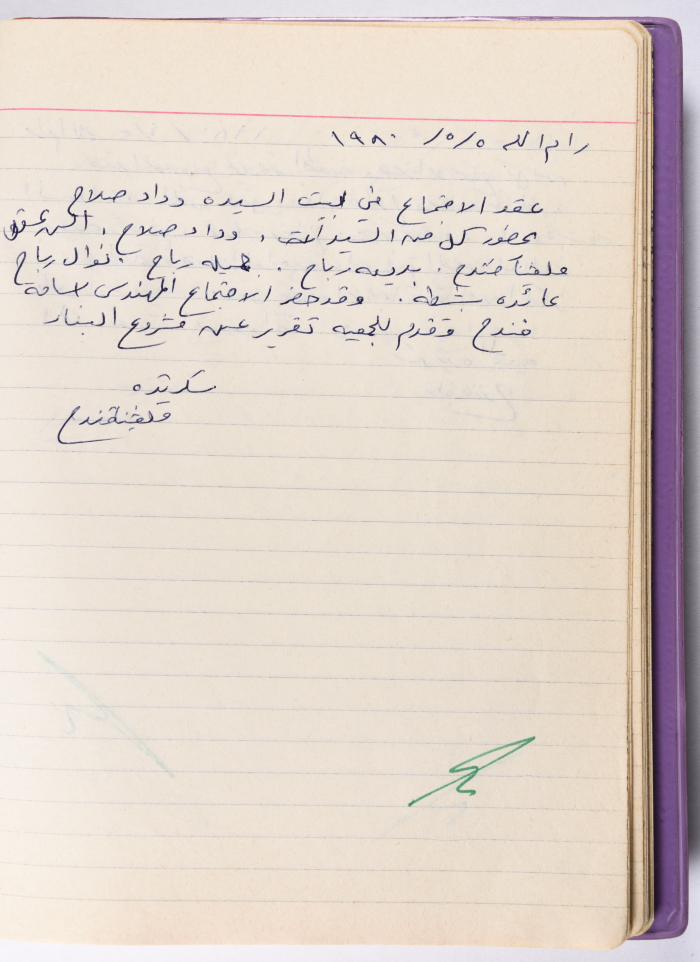 رام الله ٥/٥/ ١٩٨٠
عقد الاجتماع في بيت السيده وداد صلاح
بحضور كل من السيدات ، وداد صلاح ،
قندح . بديعه رباح . جميله رباح . نوال رباح
عائده بشطه . وقد حضر الاجتماع المهندس اسامة
قندح وقدم للجمعيه تقرير عن مشروع البناء
سكرتيره
قندح